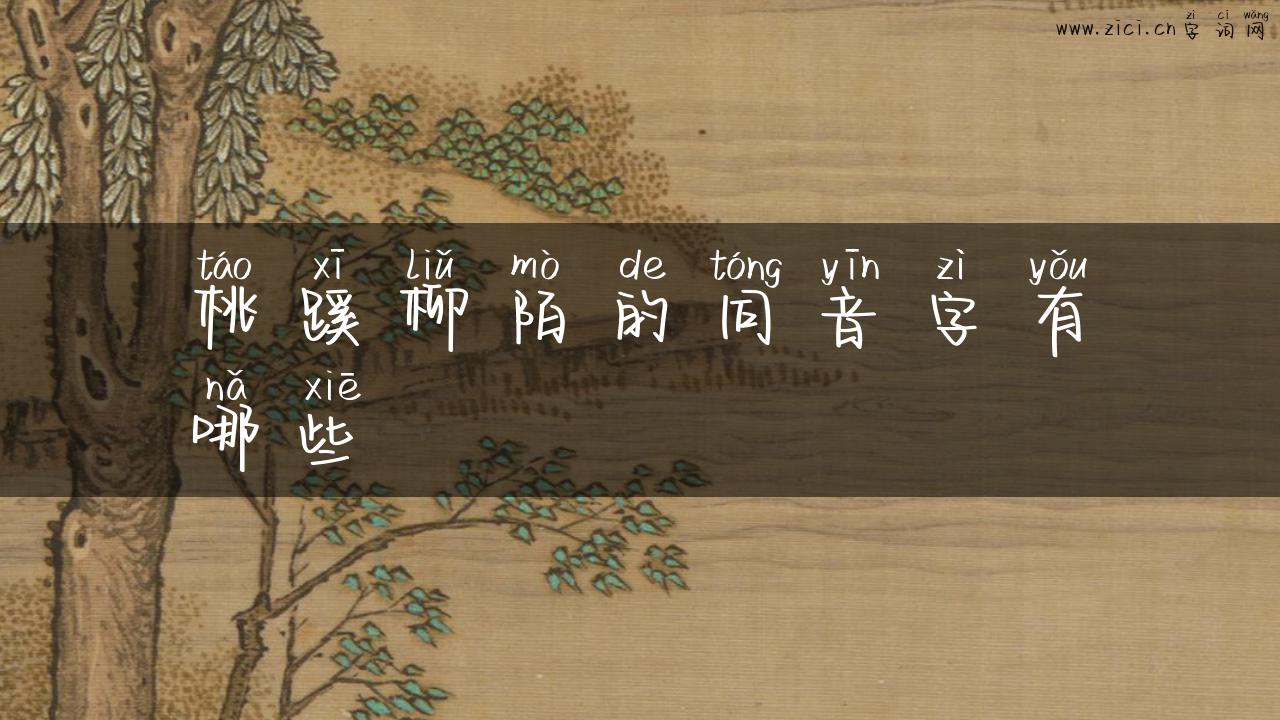 zì cí wǎng
www.zici.cn 字词网
táo xī liǔ mò de tóng yīn zì yǒu
桃蹊柳陌的同音字有
nǎ xiē
哪些